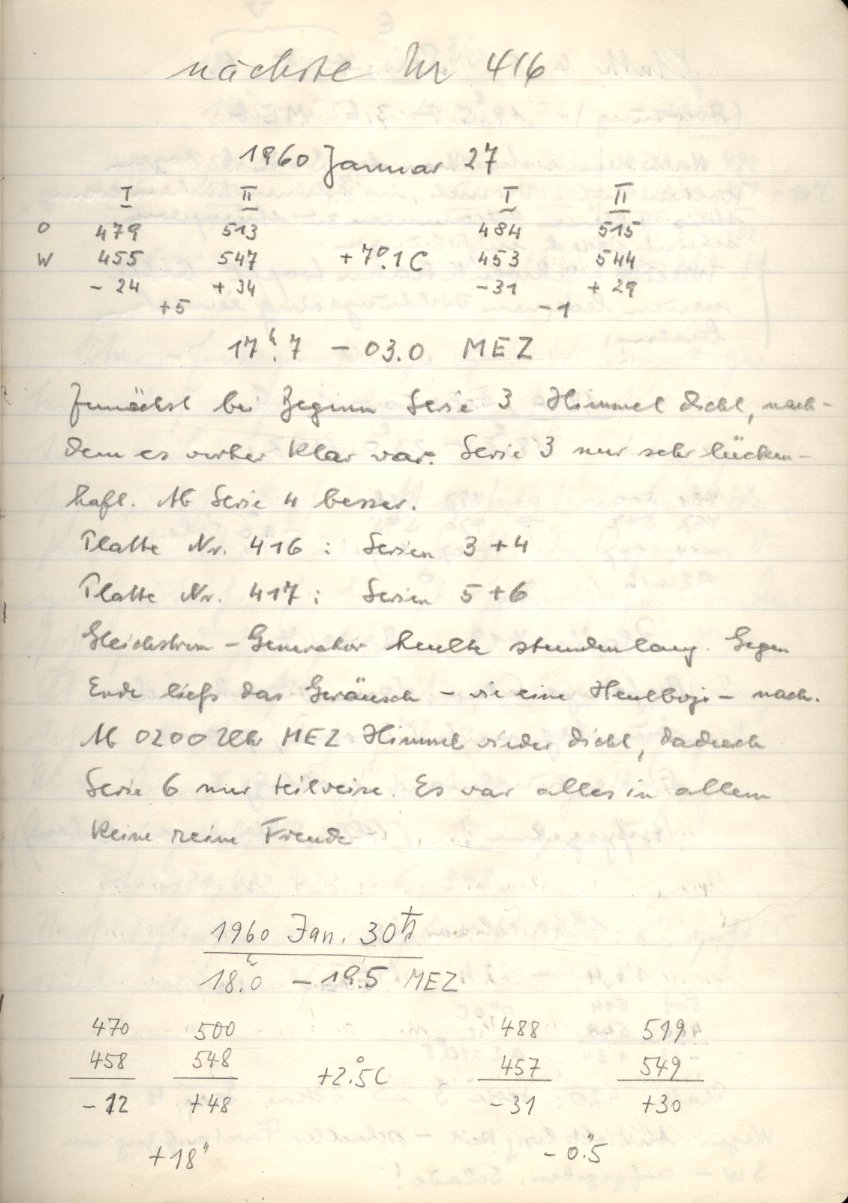 nächste Nr 416
1960 Januar 27
I II I II
O 479 513 484 515
W 455 547 +7°.1C 453 544
-24 +34 -31 +29
+5 -1
17ʰ.7 - 03.0 MEZ
Zunächst bei Beginn Serie 3 Himmel dicht, nach-
dem es vorher klar war. Serie 3 nur sehr lücken-
haft. Ab Serie 4 besser.
Platte Nr. 416: Serien 3+4
Platte Nr. 417: Serien 5+6
Gleichstrom-Generator heulte stundenlang. Gegen
Ende ließ das Geräusch - wie eine Heulboje - nach.
Ab 0200 Uhr MEZ Himmel wieder dicht, dadurch
Serie 6 nur teilweise. Es war alles in allem
keine reine Freude
1960 Jan. 30 ♄
18ʰ.0 - 19.5 MEZ
470 500 488 519
458 548 +2°.5C 457 549
-12 +48 -31 +30
+18" -0".5